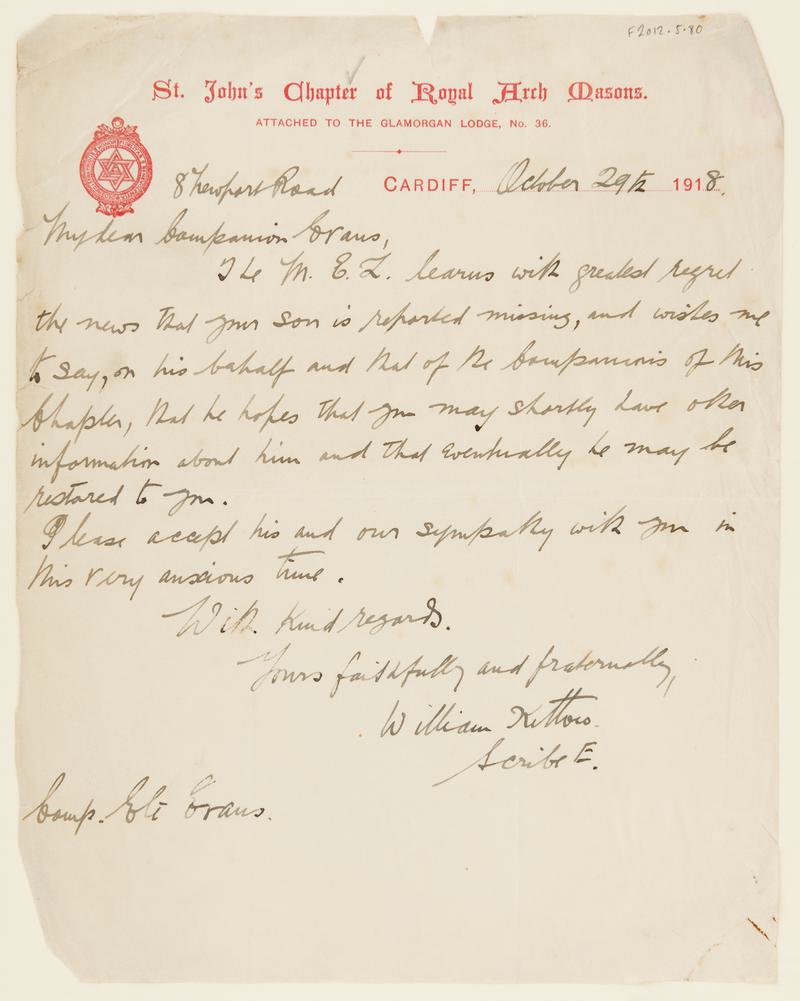 F2012.5.80
St. John's Chapter of Royal Arch Masons.
ATTACHED TO THE GLAMORGAN LODGE, No. 36.
8 Newport Road CARDIFF, October 29th 1918.
My dear Companion Evans,
The M. E. Z. learns with greatest regret
the news that your son is reported missing, and wishes me
to say, on his behalf and that of the Companions of this
Chapter, that he hopes that you may shortly have other
information about him and that eventually he may be
restored to you.
Please accept his and our sympathy with you in
this very anxious time.
With kind regards.
Yours faithfully and fraternally,
William Kittow.
Scribe E.
Comp. Eli Evans.